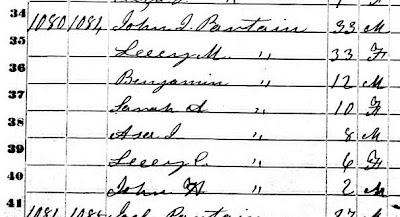 34 1080 1084 John I. Bantain 33 M
35 Leecy M. " 33 F
36 Benjamin " 12 M
37 Sarah A. " 10 F
38 Asa I " 8 M
39 Leecy C. " 6 F
40 John H " 2 M
41 1081 Bantain 37 M